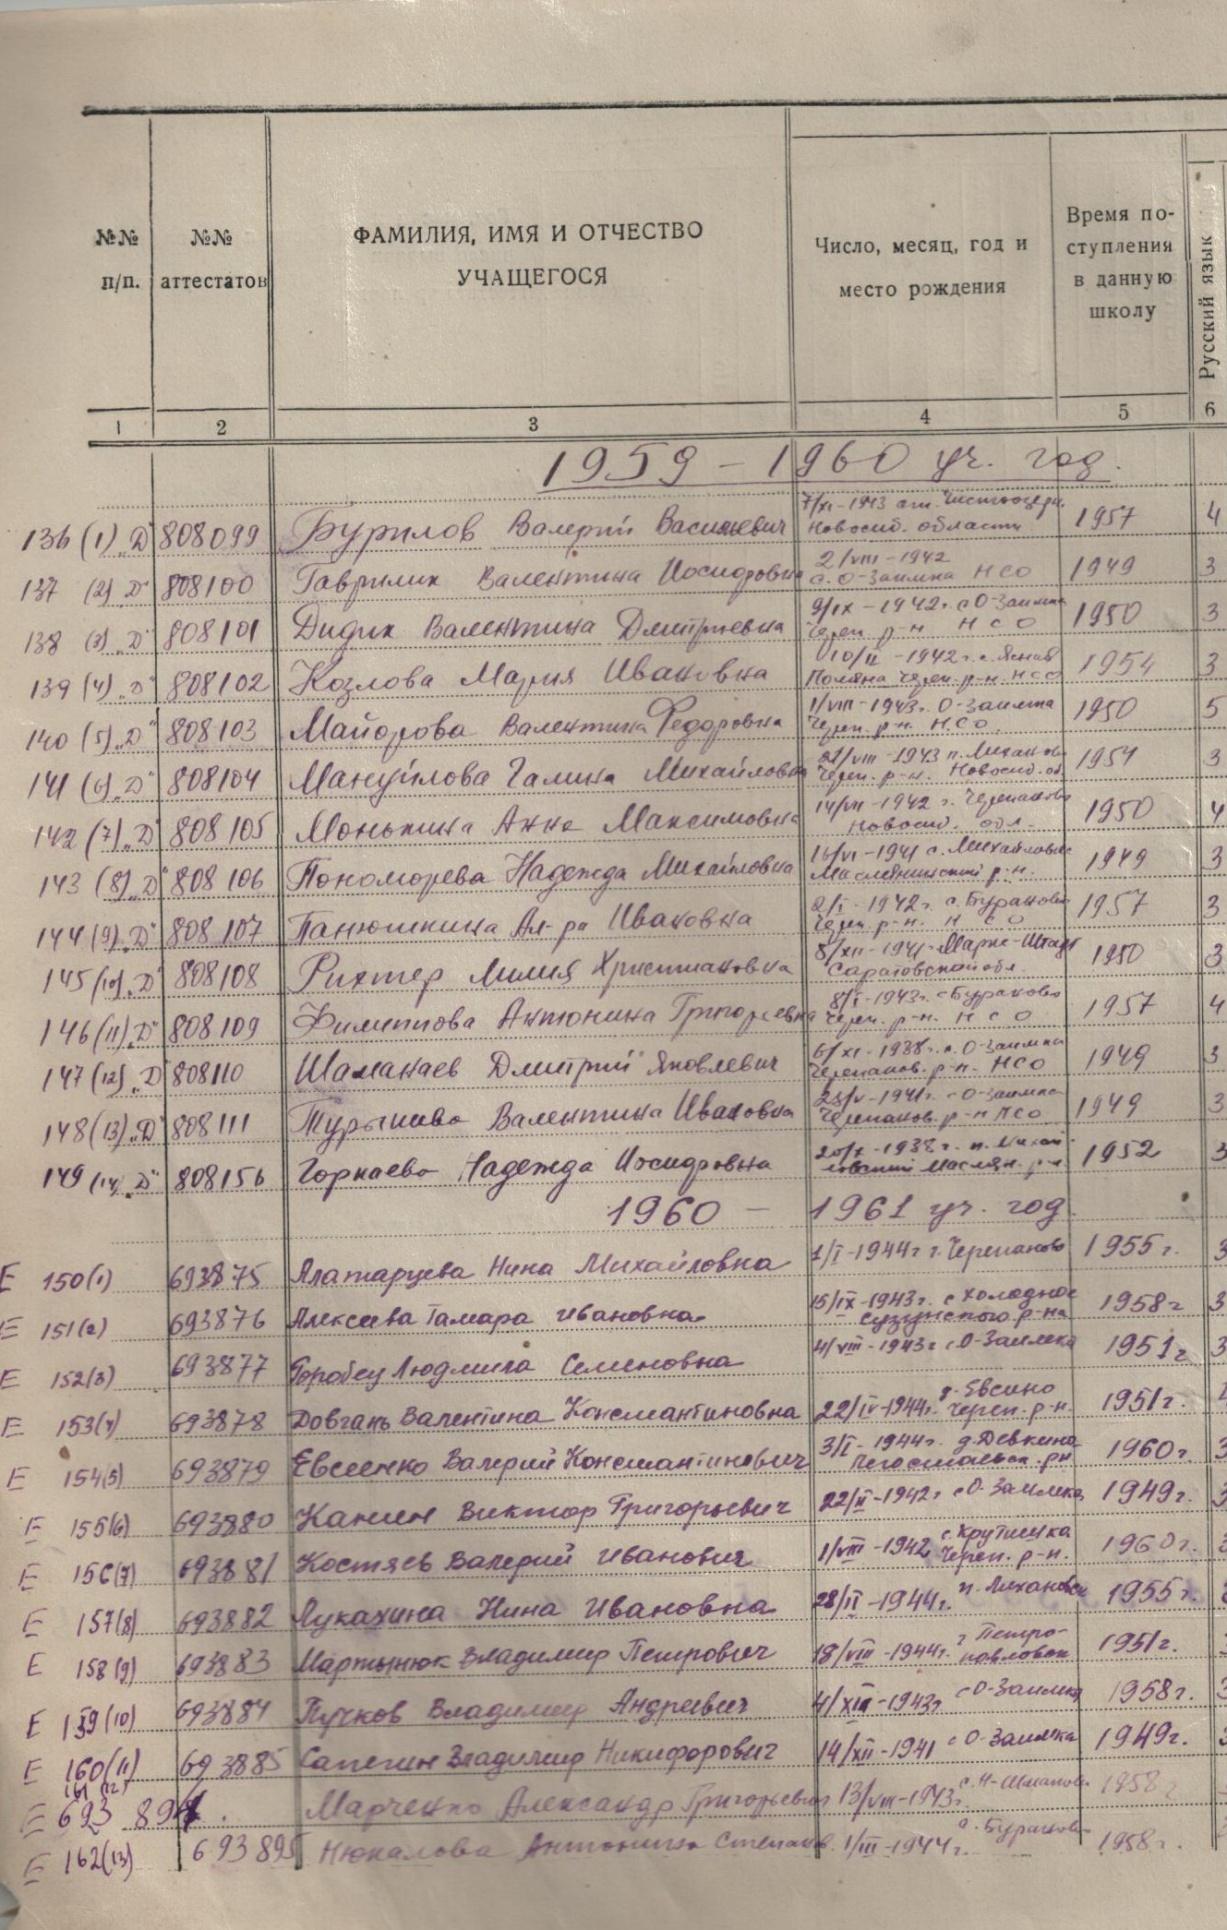 №№ п/п.
№№ аттестатов
ФАМИЛИЯ, ИМЯ И ОТЧЕСТВО УЧАЩЕГОСЯ
Число, месяц, год и место рождения
Время поступления в данную школу
Русский язык
1 2 3 4 5 6
1959 – 1960 уч. год.
136 (1) „Д" 808099 Бурилов Валерий Васильевич 7/XI-1943 ст. Чистоозерн. Новосиб. области 1957 4
137 (2) „Д" 808100 Гаврилик Валентина Иосифовна 2/VIII-1942 с. О-Заимка НСО 1949 3
138 (3) „Д" 808101 Дидик Валентина Дмитриевна 9/IX-1942г. с О-Заимка Череп. р-н НСО 1950 3
139 (4) „Д" 808102 Козлова Мария Ивановна 10/II-1942г. с. Ясная Поляна Череп. р-н. НСО 1954 3
140 (5) „Д" 808103 Майорова Валентина Федоровна 1/VIII-1943г. О-Заимка Череп. р-н. НСО 1950 5
141 (6) „Д" 808104 Мануйлова Галина Михайловна 21/VIII-1943 Череп. р-н. Новосиб. об. 1954 3
142 (7) „Д" 808105 Монькина Анна Максимовна 14/VII-1942 г. Черепаново Новосиб. обл. 1950 4
143 (8) „Д" 808106 Пономорева Надежда Михайловна 16/VI-1941 с. Маслянинский р-н. 1949 3
144 (9) „Д" 808107 Панюшкина Ал-ра Ивановна 2/I-1942г. с. Бураново Череп. р-н. НСО 1957 3
145 (10) „Д" 808108 Рихтер Лилия Христиановна 8/XII-1941 Маркс-Штадт Саратовской обл. 1950 3
146 (11) „Д" 808109 Филиппова Антонина Григорьевна 8/I-1943г. с Бураново Череп. р-н. НСО 1957 4
147 (12) „Д" 808110 Шаманаев Дмитрий Яковлевич 6/XI-1938г. О-Заимка Черепанов. р-н. НСО 1949 3
148 (13) „Д" 808111 Валентина Ивановна 23/V-1941г. с О-Заимка Черепанов. р-н НСО 1949 3
149 (14) „Д" 808156 Горкаева Надежда Иосифовна 1938г. Маслян. р-н 1952 3
1960 – 1961 уч. год
Е 150 (1) 693875 Алатарцева Нина Михайловна 1/I-1944г г. Черепаново 1955г. 3
Е 151 (2) 693876 Алексеева Тамара Ивановна 15/IX-1943г. с Холодное Сузунского р-на 1958г 3
Е 152 (3) 693877 Горобец Людмила Семеновна 4/VIII-1943г с О-Заимка 1951г 3
Е 153 (4) 693878 Довгань Валентина Константиновна 22/IV-1944г. д. Евсино Череп. р-н. 1951г.
Е 154 (5) 693879 Евсеенко Валерий Константинович 3/I-1944г. д. Девкино р-н 1960г. 3
Е 155 (6) 693880 Канин Виктор Григорьевич 22/II-1942г с О-Заимка 1949г. 3
Е 156 (7) 693881 Костяев Валерий Иванович 1/VIII-1942 с. Крутишка Череп. р-н. 1960г. 3
Е 157 (8) 693882 Лукахина Нина Ивановна 28/II-1944г. 1955г.
Е 158 (9) 693883 Мартынюк Владимир Петрович 18/VIII-1944г. г Петропавловск 1951г.
Е 159 (10) 693884 Пучков Владимир Андреевич 4/XII-1943г с О-Заимка 1958г. 3
Е 160 (11) 693885 Сапегин Владимир Никифорович 14/XII-1941 с О-Заимка 1949г. 3
161 (12)
Е 693 894. Марченко Александр Григорьевич 13/VIII-1943г. 1958г
Е 162 (13) 693895 Нюкалова Антонина Степанов. 1/III-1944г. с. Бураново 1958г.